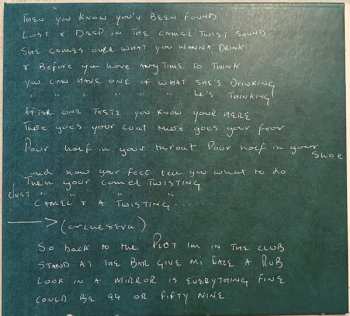 Then you know you'v been found
Lost & Deep in the camel twist sound
She comes over what you wanna drink
& Before you have any time to think
you can have one of what she's drinking
" " " " " " he's thinking
After one taste you know your here
There goes your coat there goes your fear
Pour half in your throat Pour half in your shoe
and now your feet tell you what to do
Then your camel twisting
Just "
"Camel & A Twisting...
→ (orchestra)
So back to the plot im in the club
Stand at the bar give mi face a rub
Look in a mirror is everything fine
Could be 94 or fifty nine